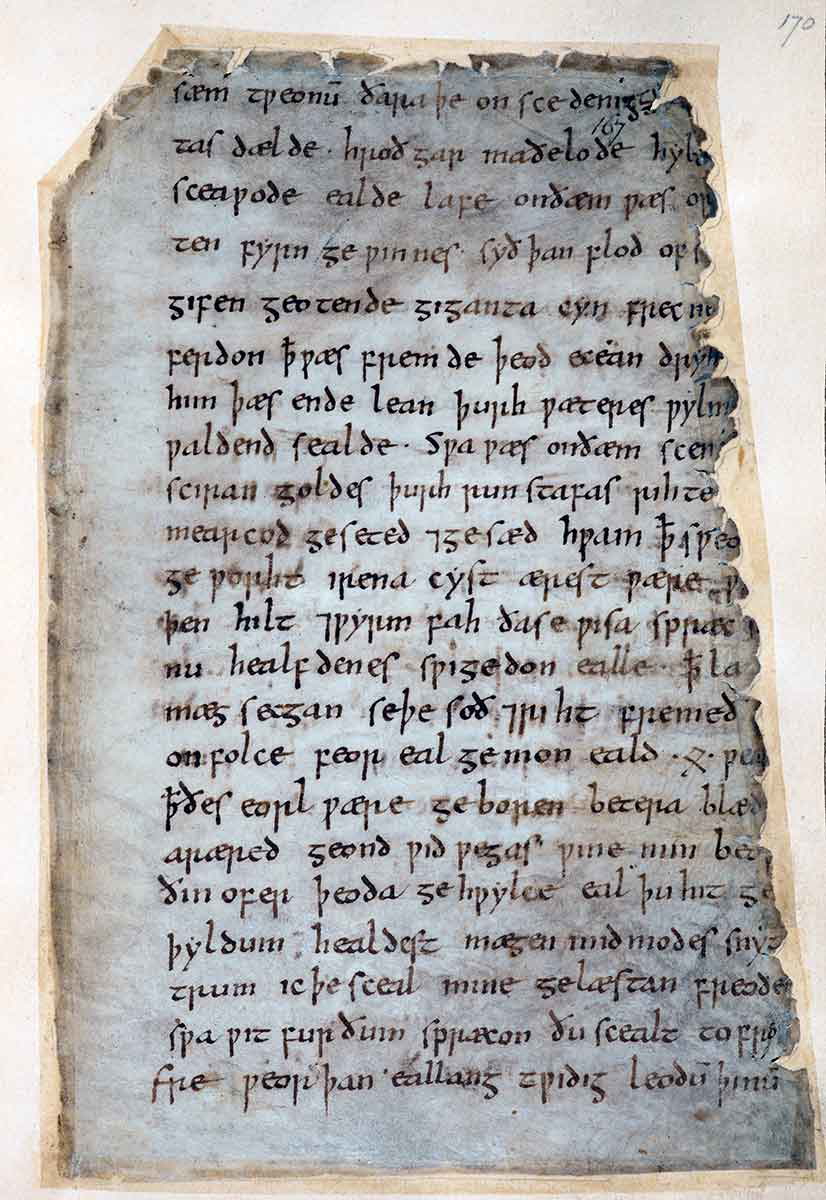 170
sæm tƿeonū ðara þe on sce denigg
167
tas dælde · hroð gar maðelode hyl
sceaƿode ealde lafe onðæm ƿæs or
ten fyrn ge ƿinnes · syð þan flod of s
gifen geotende giganta cyn frecn
ferdon ꝥ ƿæs fremde þeod ecean dryh
him þæs ende lean þurh ƿæteres ƿylm
ƿaldend sealde · Sƿa ƿæs onðæm scen
sciran goldes þurh run stafas rihte
mearcod ge seted ⁊ ge sæd hƿam ꝥ sƿeo
ge ƿorht irena cyst ærest ƿære
þen hilt ⁊ ƿyrm fah ða se ƿisa spræc
nu healfdenes sƿigedon ealle · ꝥ la
mæg secgan seþe soð ⁊ riht fremeð
on folce feor eal ge mon eald · ᛟ · ƿea
ꝥ ðes eorl ƿære ge boren betera blæd
aræred geond ƿid ƿegas ƿine min beo
ðin ofer þeoda ge hƿylce eal þu hit ge
þyldum healdest mægen mid modes snyt
trum ic þe sceal mine gelæstan freode
sƿa ƿit furðum spræcon ðu scealt to fro
fre ƿeorþan eallang tƿidig leodū þinū